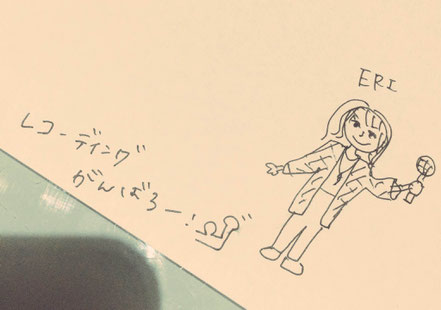 ERI
レコーディング
がんばろー!